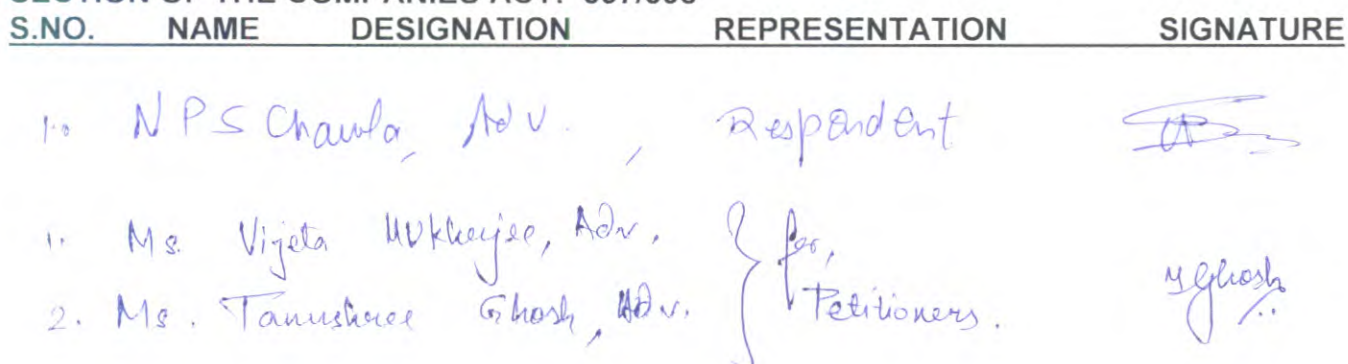 S.NO. NAME DESIGNATION REPRESENTATION SIGNATURE
1. N P S Chawla, Adv. , Respondent
1. Ms. Vijeta Mukherjee, Adv. } for,
2. Ms. Tanushree Ghosh, Adv. Petitioners. Ghosh